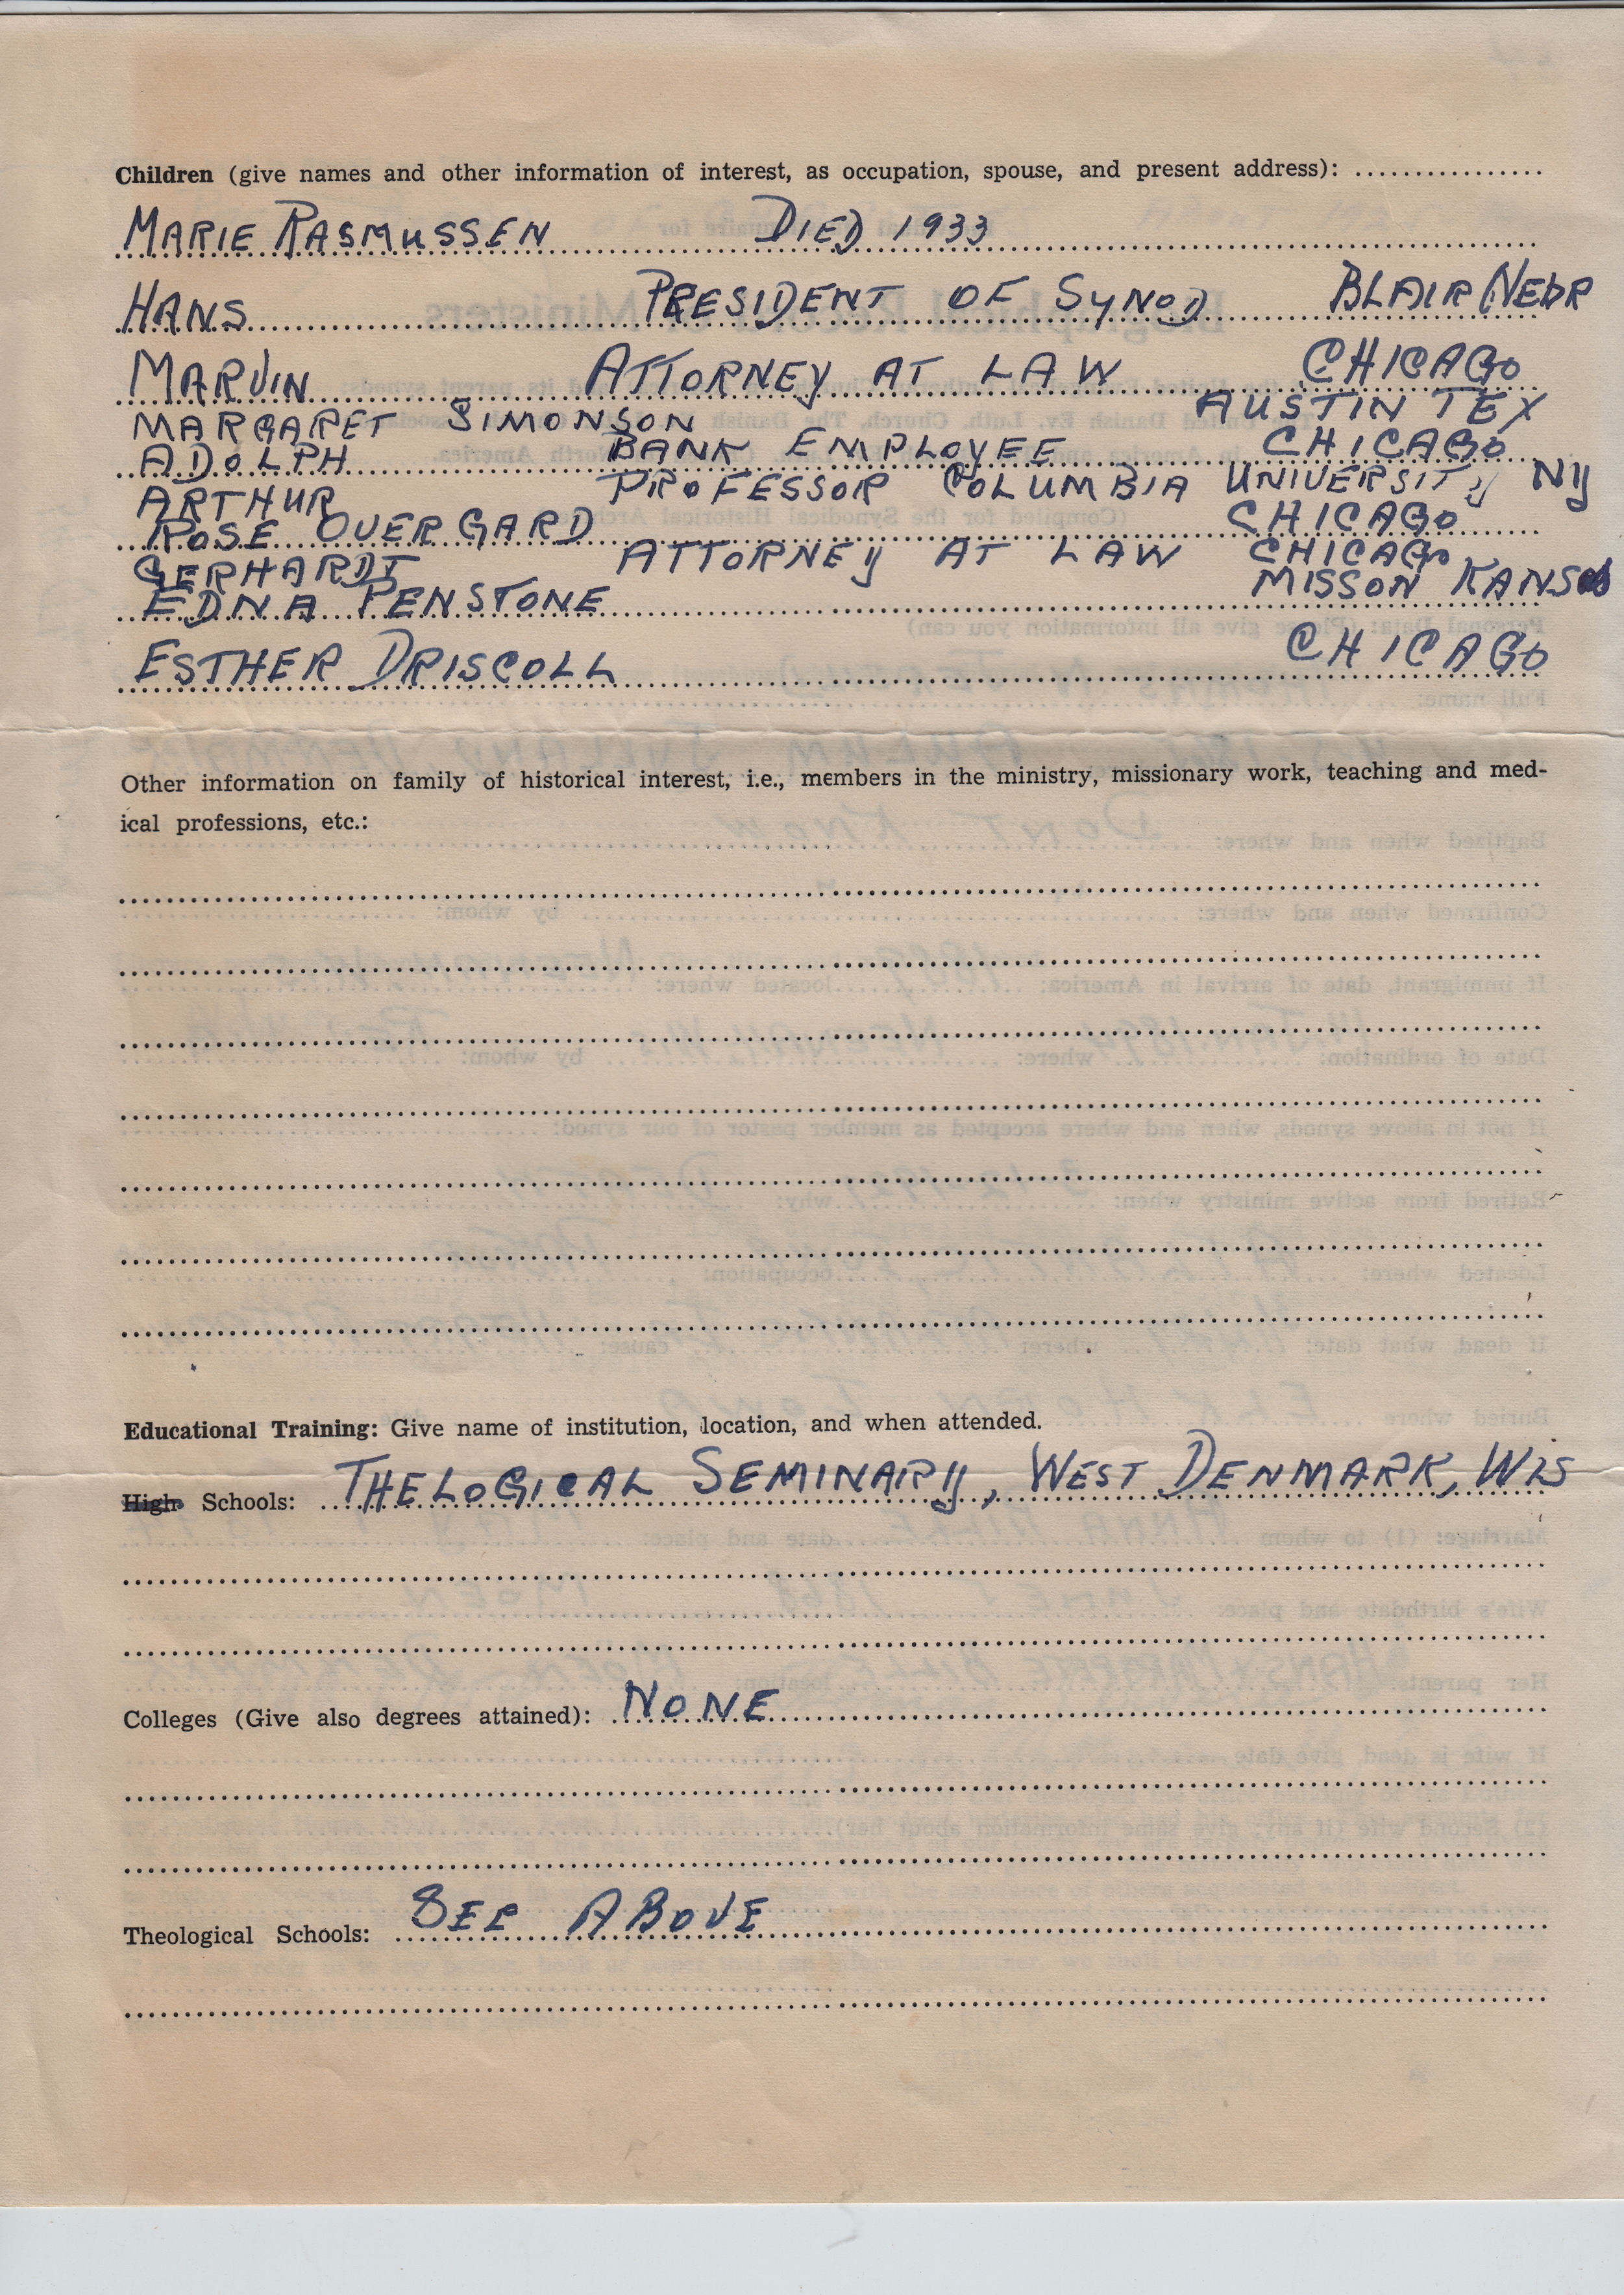 Children (give names and other information of interest, as occupation, spouse, and present address):
MARIE RASMUSSEN DIED 1933
HANS PRESIDENT OF SYNOD BLAIR NEBR
MARVIN ATTORNEY AT LAW CHICAGO
MARGARET SIMONSON AUSTIN TEX
ADOLPH BANK EMPLOYEE CHICAGO
ARTHUR PROFESSOR COLUMBIA UNIVERSITY NY
ROSE OVERGARD CHICAGO
GERHARDT ATTORNEY AT LAW CHICAGO
EDNA PENSTONE MISSON KANSAS
ESTHER DRISCOLL CHICAGO
Other information on family of historical interest, i.e., members in the ministry, missionary work, teaching and med-
ical professions, etc.:
Educational Training: Give name of institution, location, and when attended.
High Schools: THELOGICAL SEMINARY, WEST DENMARK, WIS
Colleges (Give also degrees attained): NONE
Theological Schools: SEE ABOVE